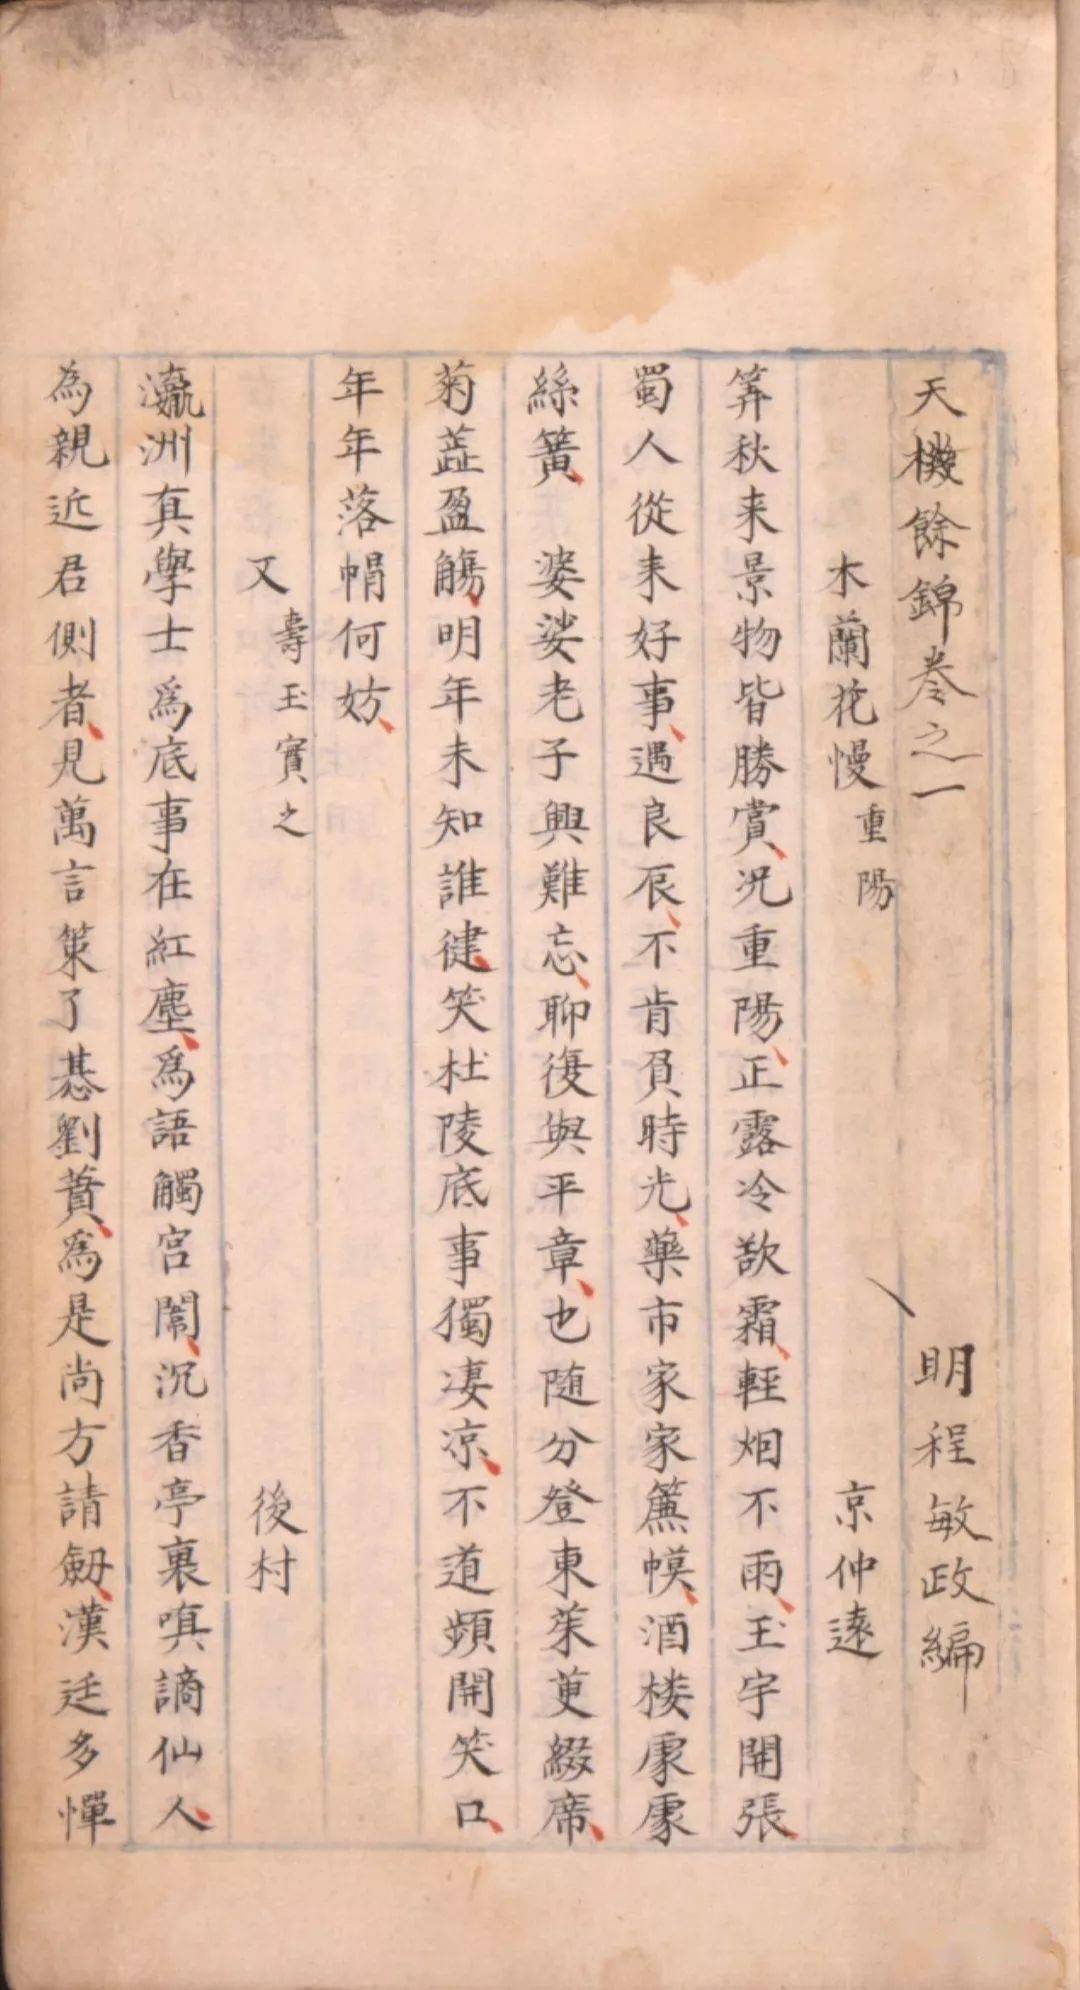 天機餘錦卷之一　明程敏政編
木蘭花慢 重陽　京仲遠
筭秋來景物皆勝賞況重陽正露冷欲霜輕烟不雨玉宇開張
蜀人從來好事遇良辰不肯負時光藥市家家簾幙酒樓處處
絲簧　婆娑老子興難忘聊復與平章也随分登東茱萸綴席
菊蕋盈觴明年未知誰健笑杜陵底事獨凄涼不道頻開笑口
年年落帽何妨
又 壽玉實之　後村
瀛洲真學士為底事在紅塵為語觸宮闈沉香亭裏嗔謫仙人
為親近君側者見萬言策了惎劉蕡為是尚方請劒漢廷多憚